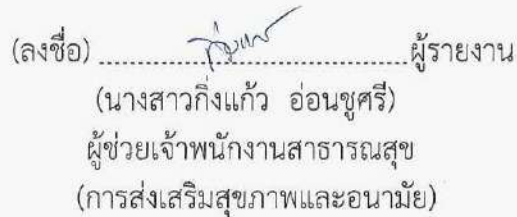 (ลงชื่อ) ........................................ ผู้รายงาน
(นางสาวกิ่งแก้ว อ่อนชูศรี)
ผู้ช่วยเจ้าพนักงานสาธารณสุข
(การส่งเสริมสุขภาพและอนามัย)